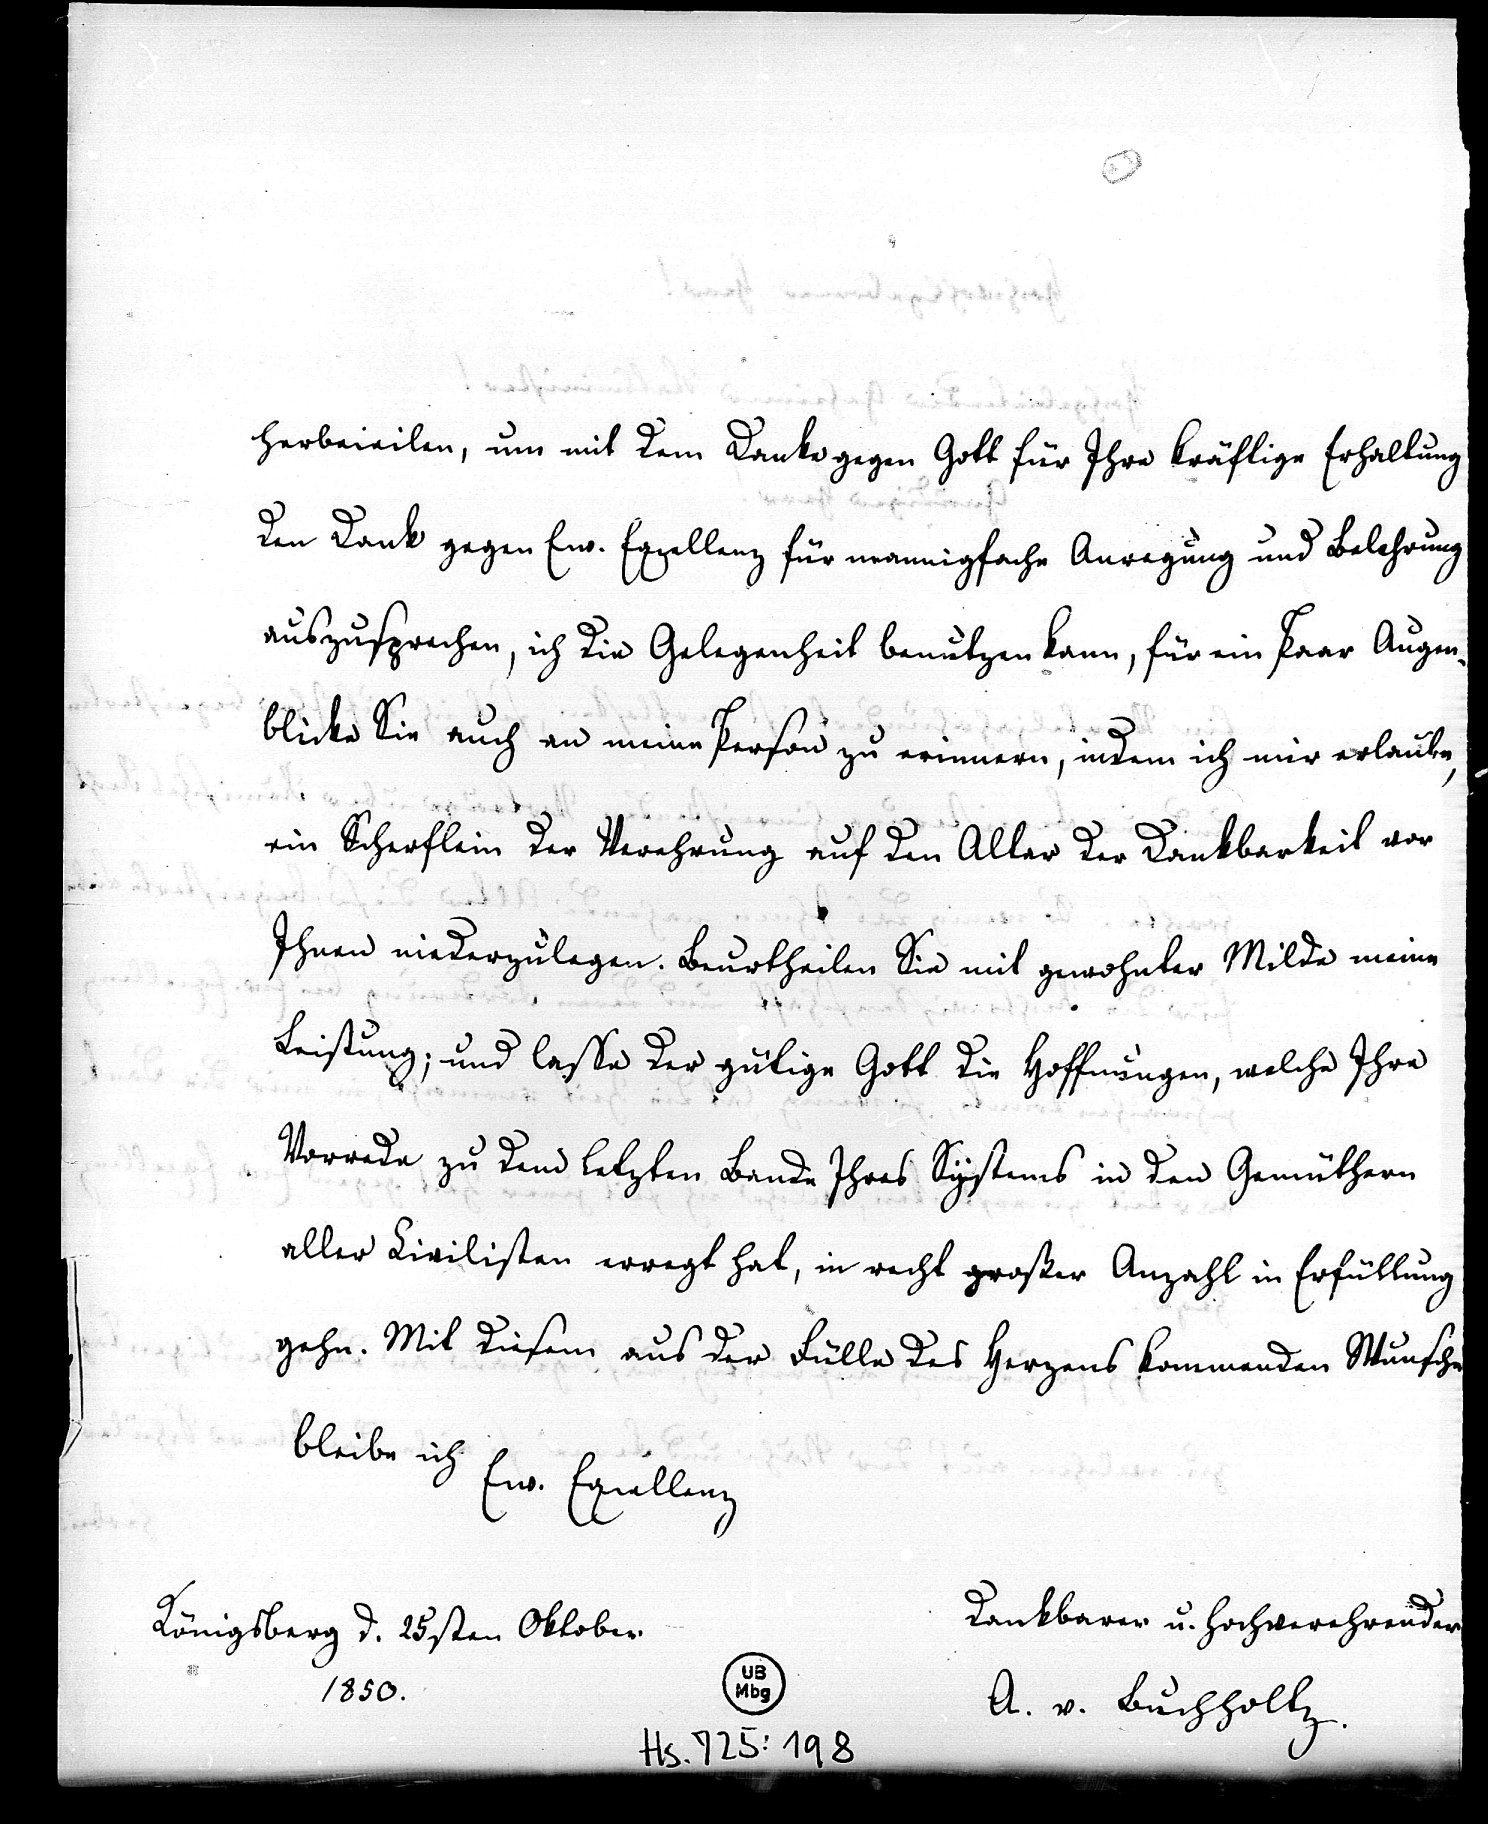 herbeieilen, um mit dem Danke gegen Gott für Ihre kräftige Erhaltung
den Dank gegen Ew. Excellenz für mannigfache Anregung und Belehrung
auszusprechen, ich die Gelegenheit benutzen kann, für ein Paar Augen-
blicke Sie auch an meine Person zu erinnern, indem ich mir erlaube,
ein Scherflein der Verehrung auf den Altar der Dankbarkeit vor
Ihnen niederzulegen. Beurtheilen Sie mit gewohnter Milde meine
Leistung; und lasse der gütige Gott die Hoffnungen, welche Ihre
Vorrede zu dem letzten Bande Ihres Systems in den Gemüthern
aller Civilisten erregt hat, in recht großer Anzahl in Erfüllung
gehn. Mit diesem aus der Fülle des Herzens kommenden Wunsche
bleibe ich
Ew. Excellenz
Dankbarer u. hochverehrender
Königsberg d. 25sten Oktober
1850.
A. v. Buchholtz.
UB
Mbg
Hs. 725: 198